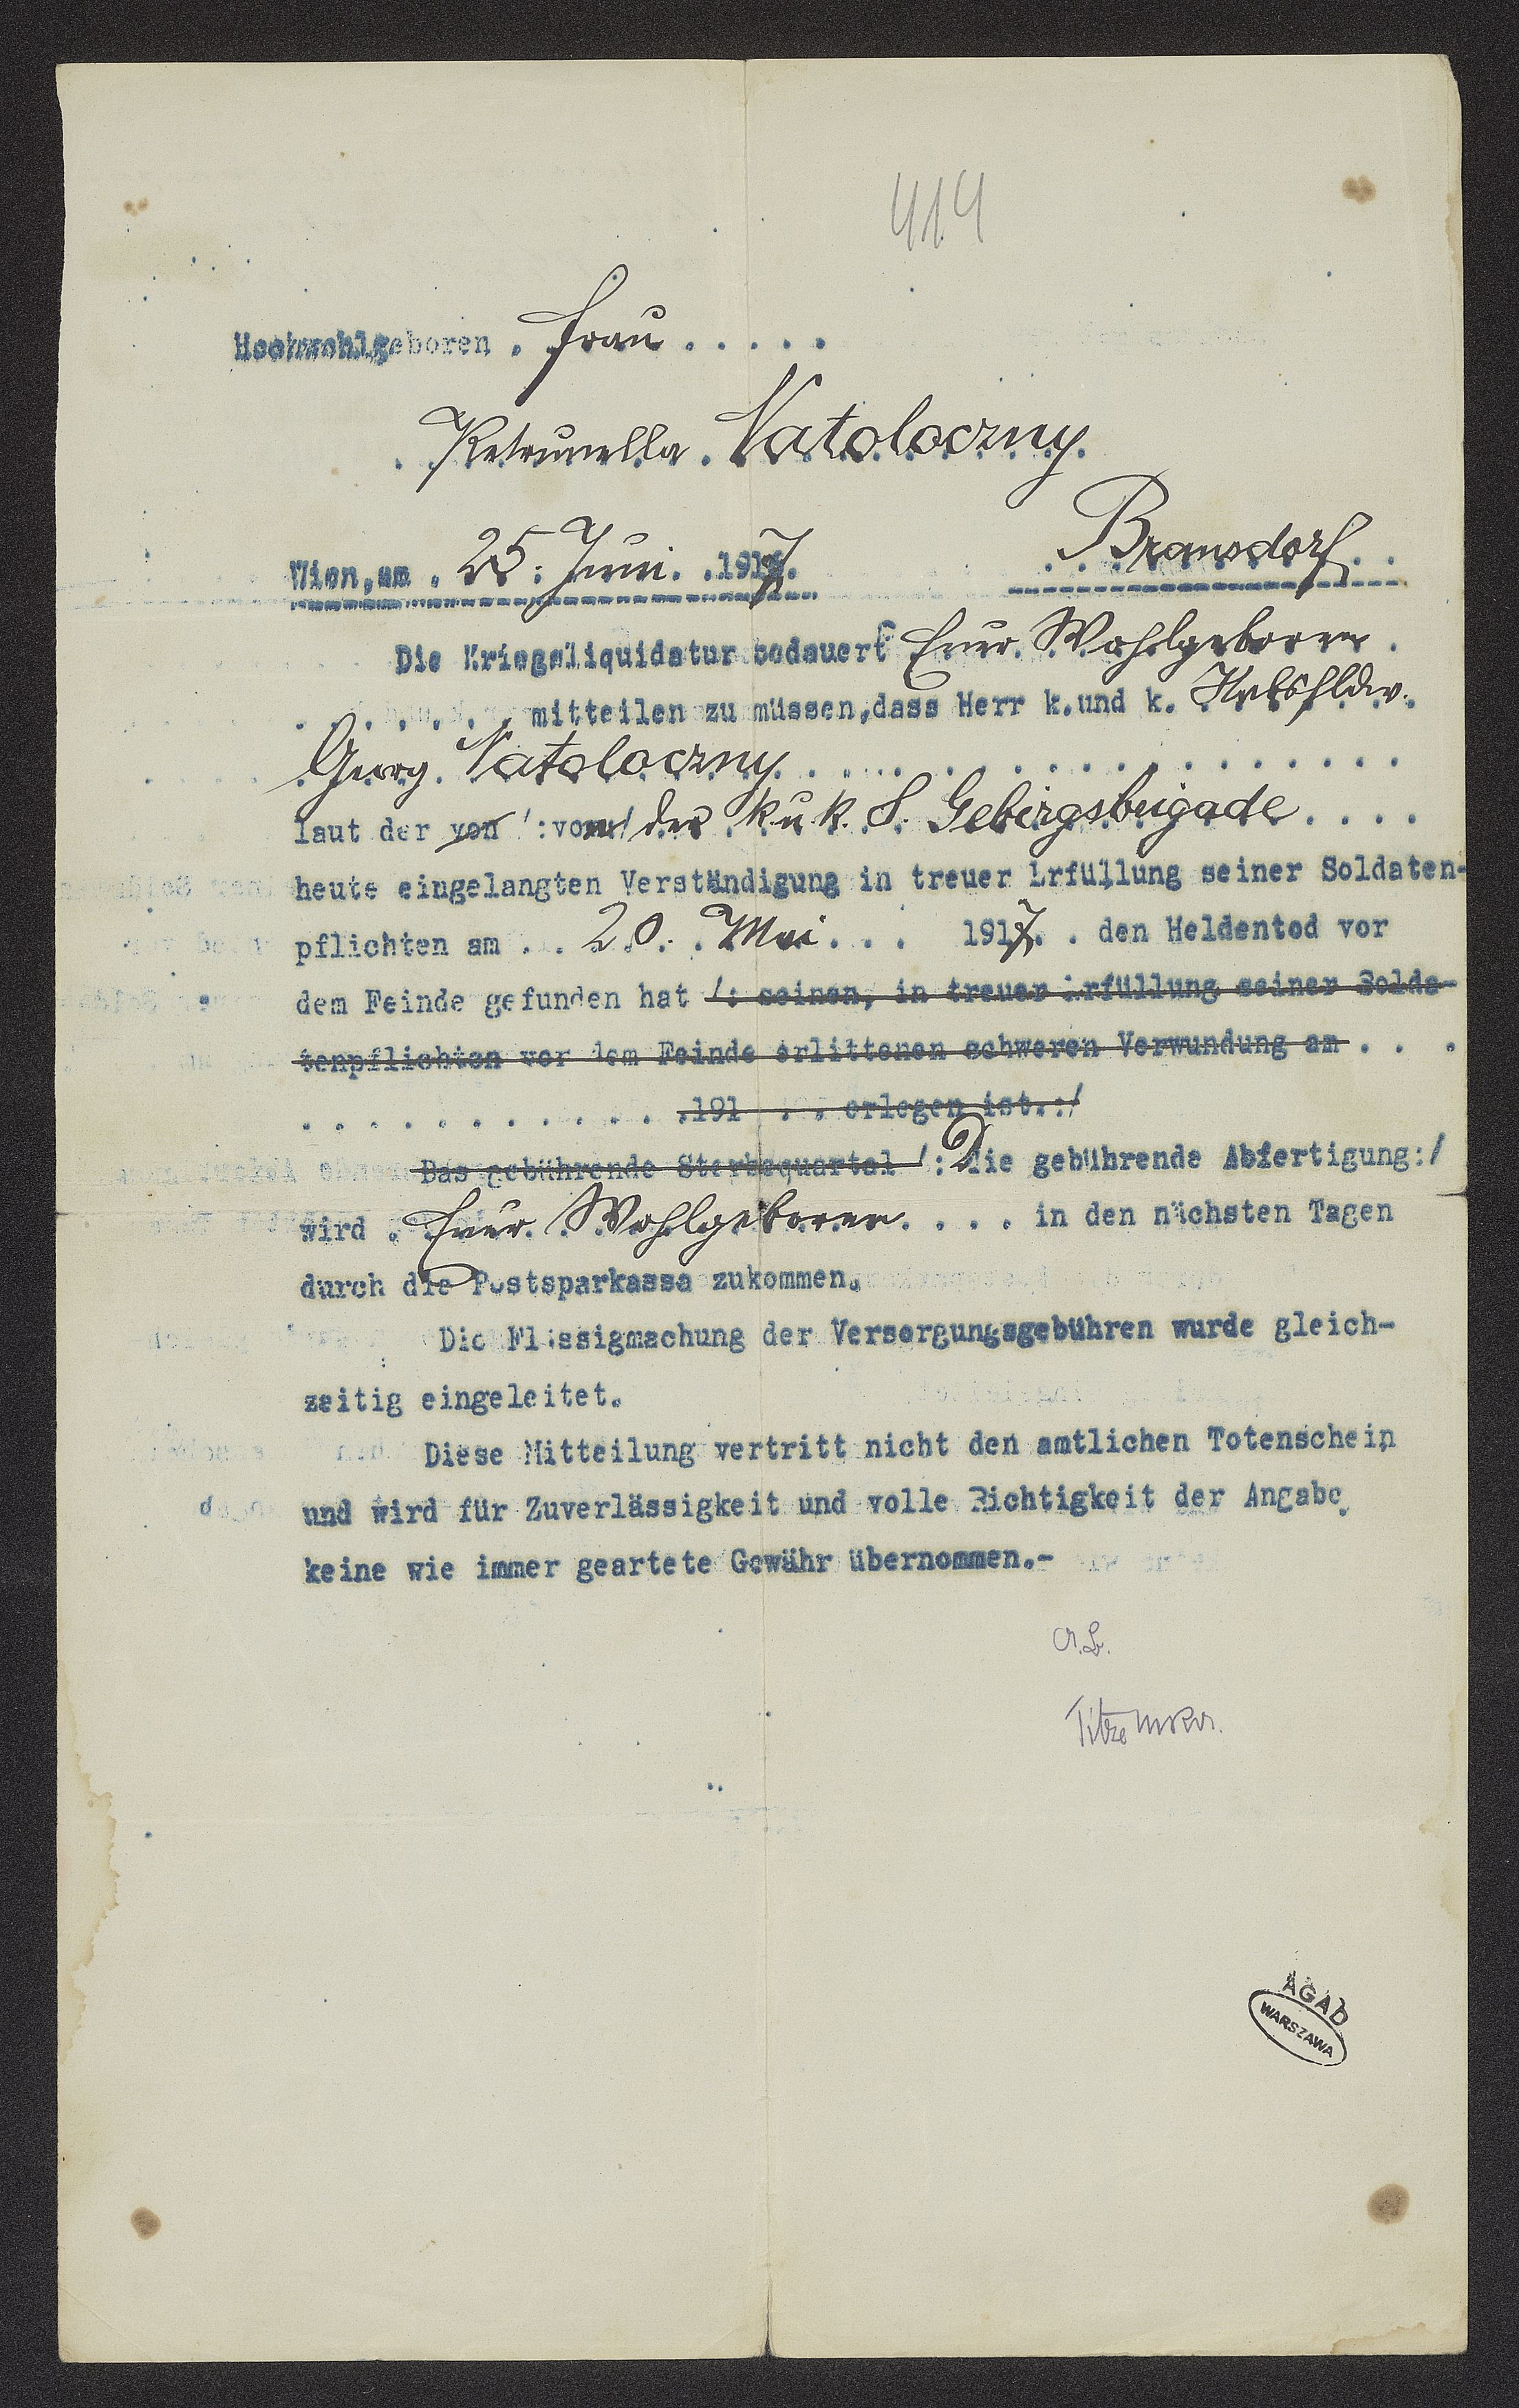 414
Hochwohlgeboren . Frau . . . . .
. Petrunella . Natoloczny.
Wien, am . 25. Juni . . 1917.
Bransdorf . .
Die Kriegsliquidatur bedauert Euer Wohlgeboren .
. . . . . . . mitteilen zu müssen, dass Herr k. und k.
Georg Natoloczny . . . . . . . . . . . . . . . . . .
laut der von /:vom/ der k. u. k. 8. Gebirgsbrigade . . . .
heute eingelangten Verständigung in treuer Erfüllung seiner Soldaten-
pflichten am . . . 20. . Mai . . . 1917. . den Heldentod vor
dem Feinde gefunden hat /: seinen, in treuer Erfüllung seiner Solda-
tenpflichten vor dem Feinde erlittenen schweren Verwundung am . . .
. . . . . . . . . . . .191 . . . erlegen ist.:/
Das gebührende Sterbequartal /: Die gebührende Abfertigung:/
wird . Euer Wohlgeboren. . . . in den nächsten Tagen
durch die Postsparkassa zukommen.
Die Flüssigmachung der Versorgungsgebühren wurde gleich-
zeitig eingeleitet.
Diese Mitteilung vertritt nicht den amtlichen Totenschein
und wird für Zuverlässigkeit und volle Richtigkeit der Angabe
keine wie immer geartete Gewähr übernommen.-
Titze
AGAD
WARSZAWA